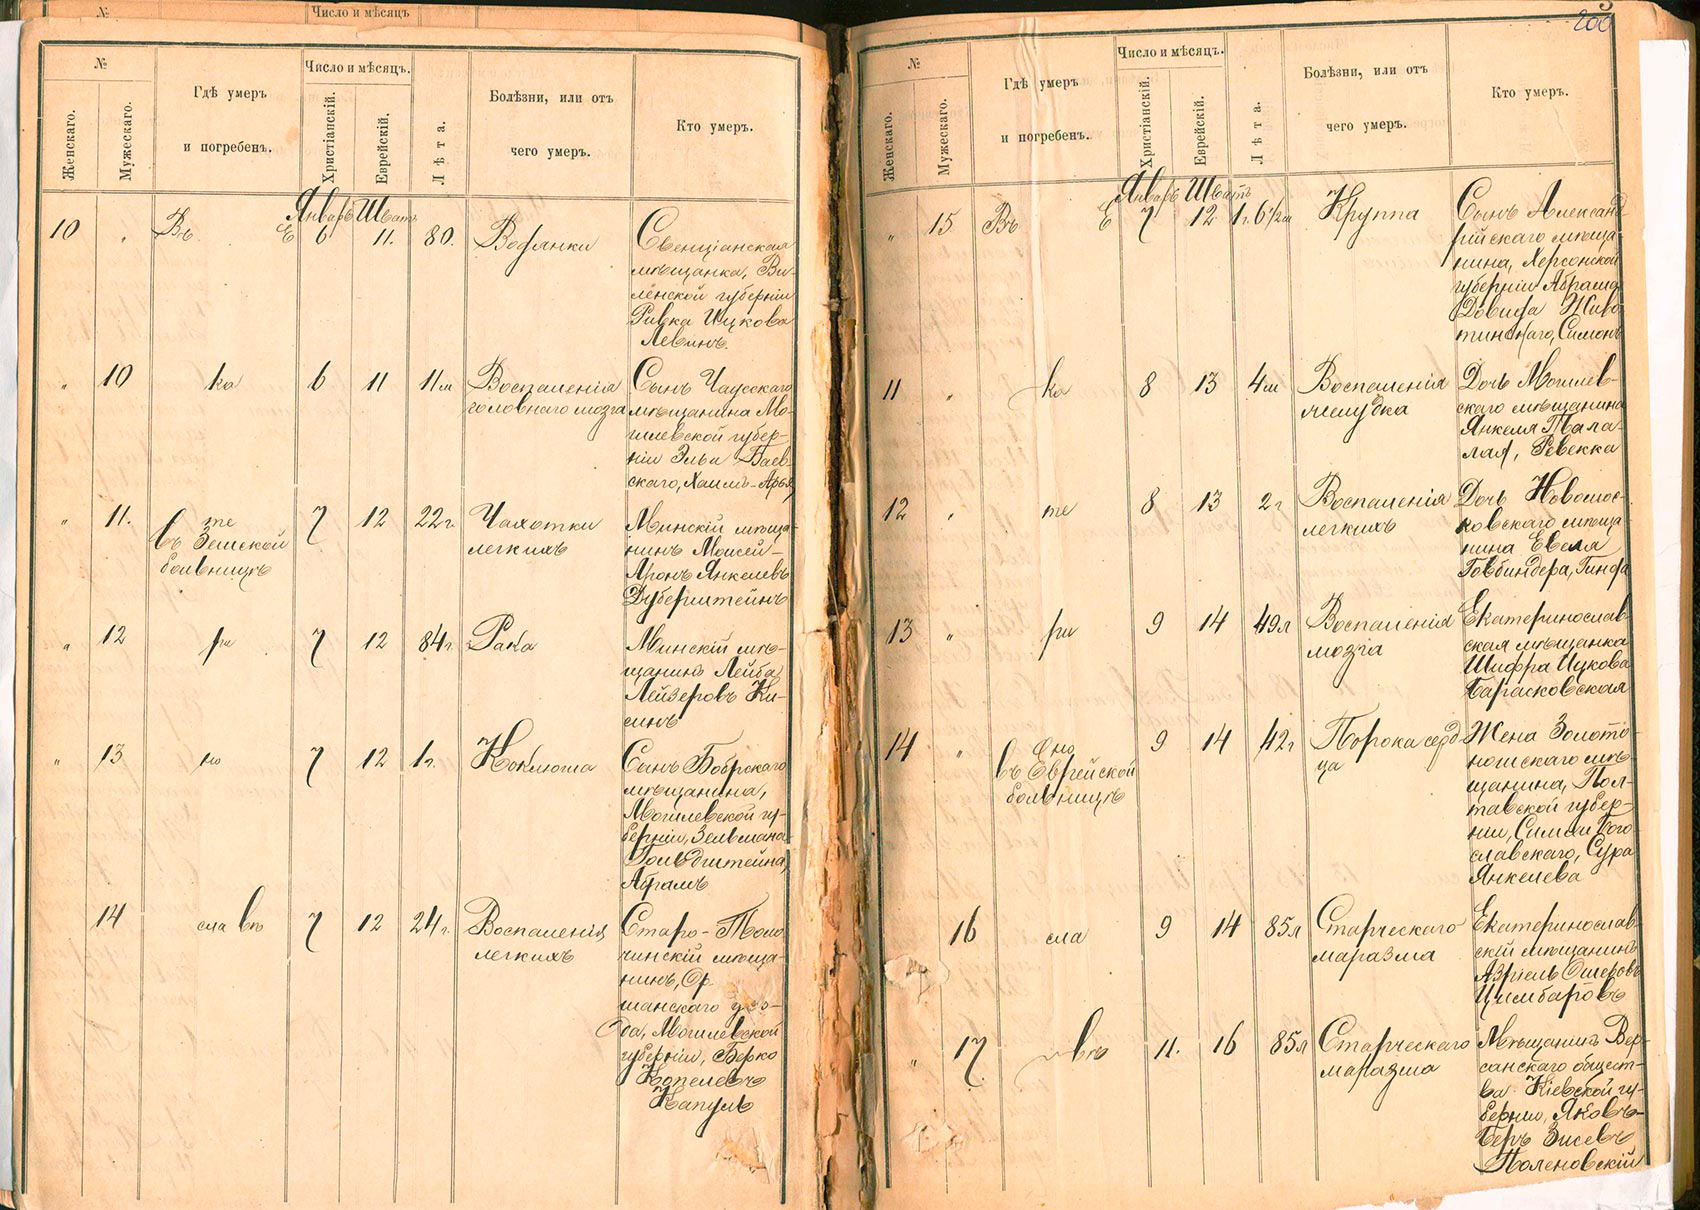 №
Число и мѣсяцъ
№
Женскаго.
Мужескаго.
Гдѣ умеръ
и погребенъ.
Число и мѣсяцъ.
Христіанскій.
Еврейскій.
Лѣта.
Болѣзни, или отъ
чего умеръ.
Кто умеръ.
Январь Шватъ
10 " Въ Е 6 11. 80. Водянки
Свенціанская
мѣщанка, Ви-
ленской губерніи
Ривка Ицкова
Левинъ.
" 10 ка 6 11 11м Воспаленія
головнаго мозга
Сынъ Чаусскаго
мѣщанина Мо-
гилевской губер-
ніи Эльи Баев-
скаго, Хаимъ-Арья
" 11. те 7 12 22г. Чахотки
въ Земской
больницѣ
легкихъ
Минскій мѣща-
нинъ Моисей-
Аронъ Янкелевъ
Дуберштейнъ
" 12 ри 7 12 84г. Рака
Минскій мѣ-
щанинъ Лейба
Лейзеровъ Ки-
синъ
" 13 но 7 12 1г. Коклюша
Сынъ Бобрскаго
мѣщанина,
Могилевской гу-
берніи, Зельмана
Гольдштейна,
Абрамъ
14 сла въ 7 12 24г. Воспаленія
легкихъ
Старо-Толо-
чинскій мѣща-
нинъ, Ор-
шанскаго уѣз-
да, Могилевской
губерніи, Берко
Копелевъ
Капуль
200
№
Женскаго.
Мужескаго.
Гдѣ умеръ
и погребенъ.
Число и мѣсяцъ.
Христіанскій.
Еврейскій.
Лѣта.
Болѣзни, или отъ
чего умеръ.
Кто умеръ.
Январь Шватъ
" 15 Въ Е 7 12 1г. 6½м Круппа
Сынъ Александ-
рійскаго мѣща-
нина, Херсонской
губерніи Абрама
Довида Живо-
тинскаго, Симонъ
11 " ка 8 13 4м Воспаленія
желудка
Дочь Могилев-
скаго мѣщанина
Янкеля Тала-
лая, Ревекка
12 " те 8 13 2г Воспаленія
легкихъ
Дочь Новомос-
ковскаго мѣща-
нина Евеля
Говбиндера, Гинда
13 " ри 9 14 49л Воспаленія
мозга
Екатеринослав-
ская мѣщанка
Шифра Ицкова
Барасковская
14 " оно 9 14 42г Порока серд-
ца
въ Еврейской
больницѣ
Жена Золото-
ношскаго мѣ-
щанина, Пол-
тавской губер-
ніи, Симхи Бого-
славскаго, Сура
Янкелева
16 сла 9 14 85л Старческаго
маразма
Екатеринослав-
скій мѣщанинъ
Азріель Ошеровъ
Цимбаровъ
" 17 въ 11. 16 85л Старческаго
маразма
Мѣщанинъ
общест-
ва Кіевской гу-
берніи, Яковъ-
Беръ Зисевъ
Поляновскій